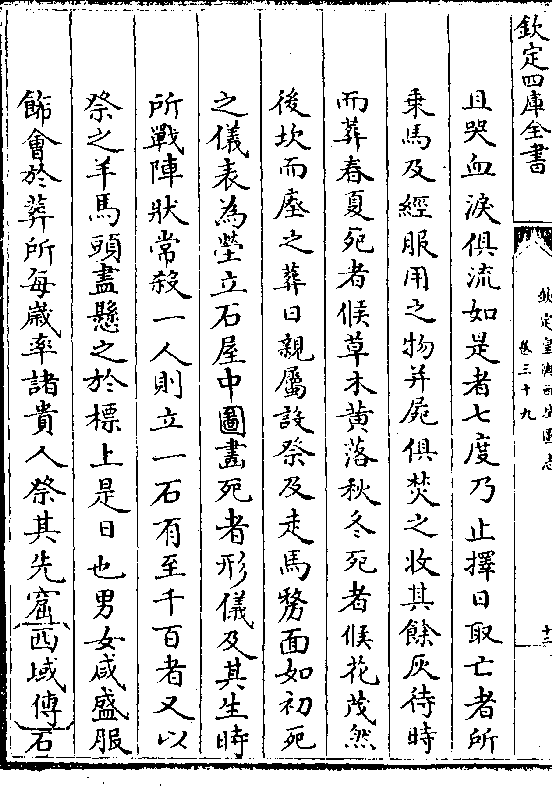 欽定四庫全書
欽定皇輿西域圖志
卷三十九
且哭血淚俱流如是者七度乃止擇日取亡者所
乘馬及經服用之物并屍俱焚之收其餘灰待時
而葬春夏死者候草木黄落秋冬死者候花茂然
後坎而瘞之葬日親屬設祭及走馬剺面如初死
之儀表為塋立石屋中圖畫死者形儀及其生時
所戰陣狀常殺一人則立一石有至千百者又以
祭之羊馬頭盡懸之於標上是日也男女咸盛服
飾會於葬所每嵗率諸貴人祭其先窟西域傳石